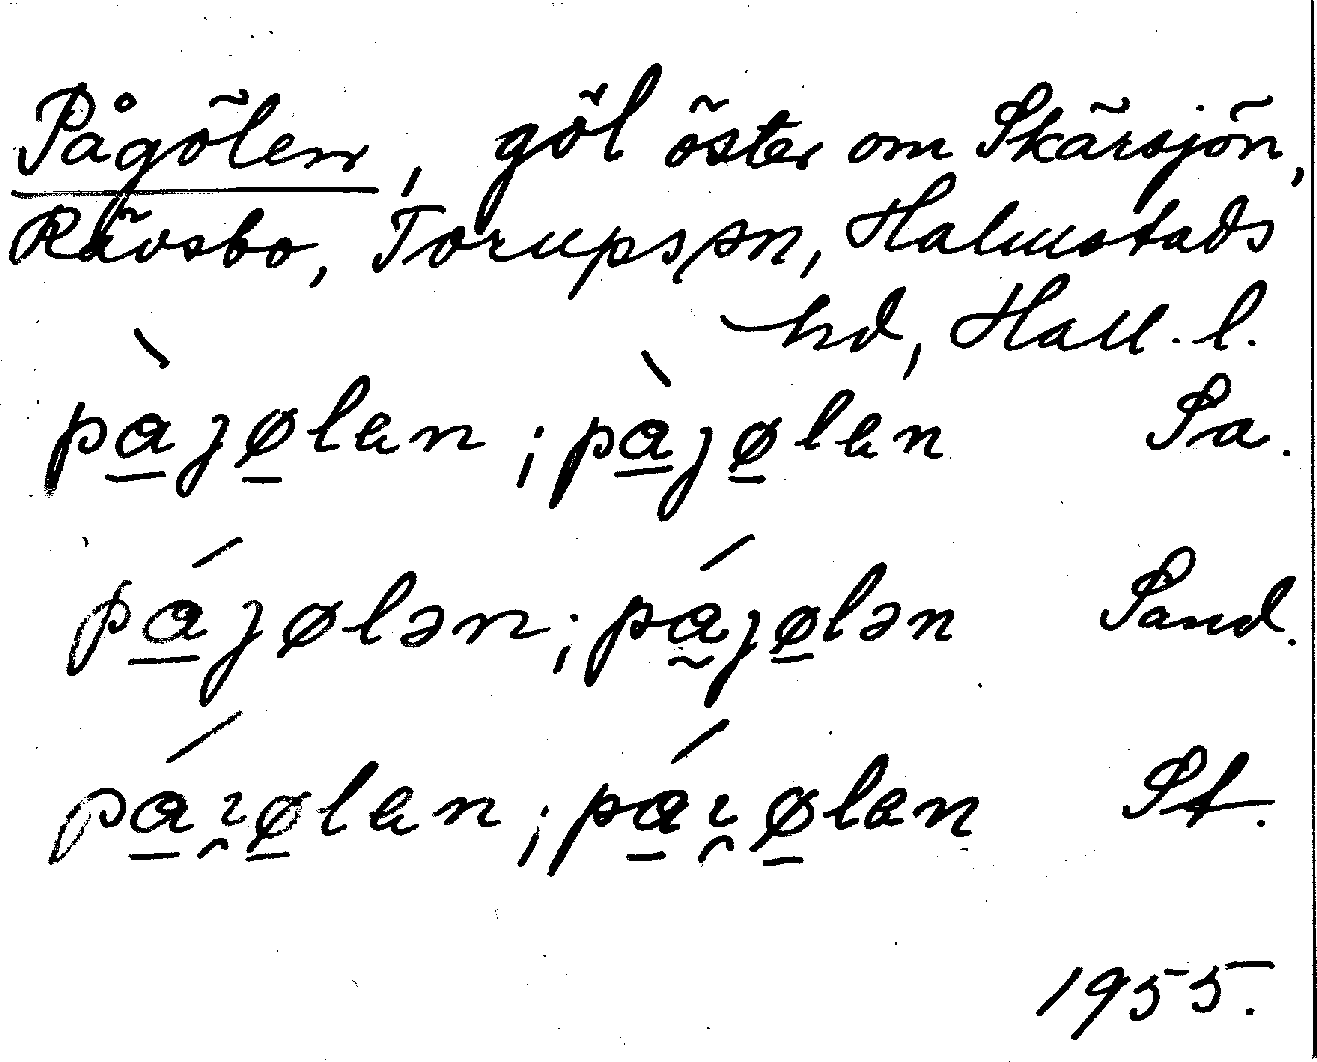 Pågölen, göl öster om Skärsjön,
Rävsbo, Torups sn, Halmstads
hd, Hall. l.
pàɡølen; pàɡølen Sa.
páɡølən; páɡølən Sand.
páɿølen; páɿølen St.
1955.